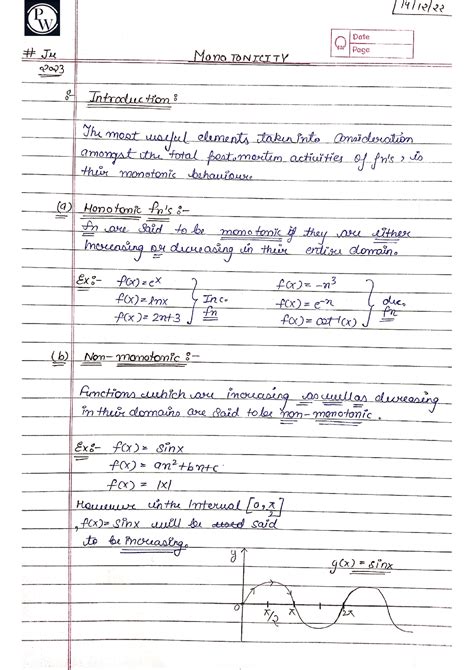 14/12/22
PW
Date
Page
# Ju
2023
MONOTONICITY
:- Introduction :
The most useful elements taken into consideration
amongst the total post-mortem activities of fn's, is
their monotonic behaviour.
(a) Monotonic fn's :-
fn are said to be monotonic if they are either
Increasing or decreasing in their entire domain.
Ex:- f(x)=e^x
f(x)=lnx
f(x)= 2x+3
Inc.
fn
f(x)= -x³
f(x)= e^-x
f(x)= cot⁻¹(x)
dec.
fn
(b) Non-monotonic :-
Functions which are increasing as well as decreasing
in their domains are said to be non-monotonic.
Ex:- f(x) = sinx
f(x) = ax²+bx+c
f(x) = |x|
However in the Interval [0, π/2]
, f(x)= sinx will be used said
to be increasing.
y
g(x) = sinx
0 π/2 π 2π x